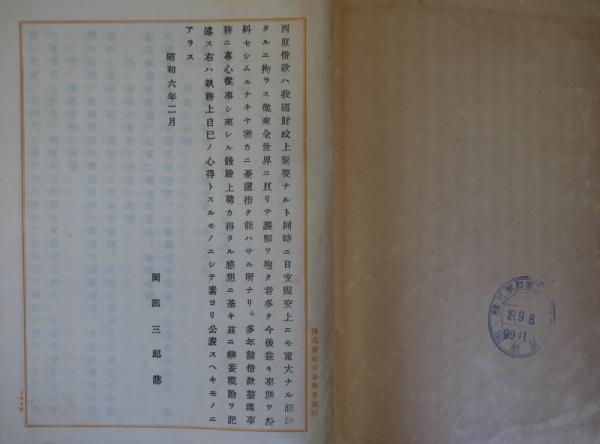 西原借款ハ我國財政上緊要ナルト同時ニ日支國交上ニモ重大ナル關係
タルニ拘ラス從來全世界ニ亘リテ誤解ヲ抱ク者多ク今後益々事態ヲ紛
糾セシムルナキヤ密カニ憂慮措ク能ハサル所ナリ。多年該借款整理事
務ニ專心從事シ來レル體驗上聊カ得タル感想ニ基キ茲ニ辯妄概論ヲ記
述ス右ハ執務上自己ノ心得トスルモノニシテ素ヨリ公表スヘキモノニ
アラス
昭和六年二月
岡部三郎誌
株式會社日本興業銀行
19.9.8
9941